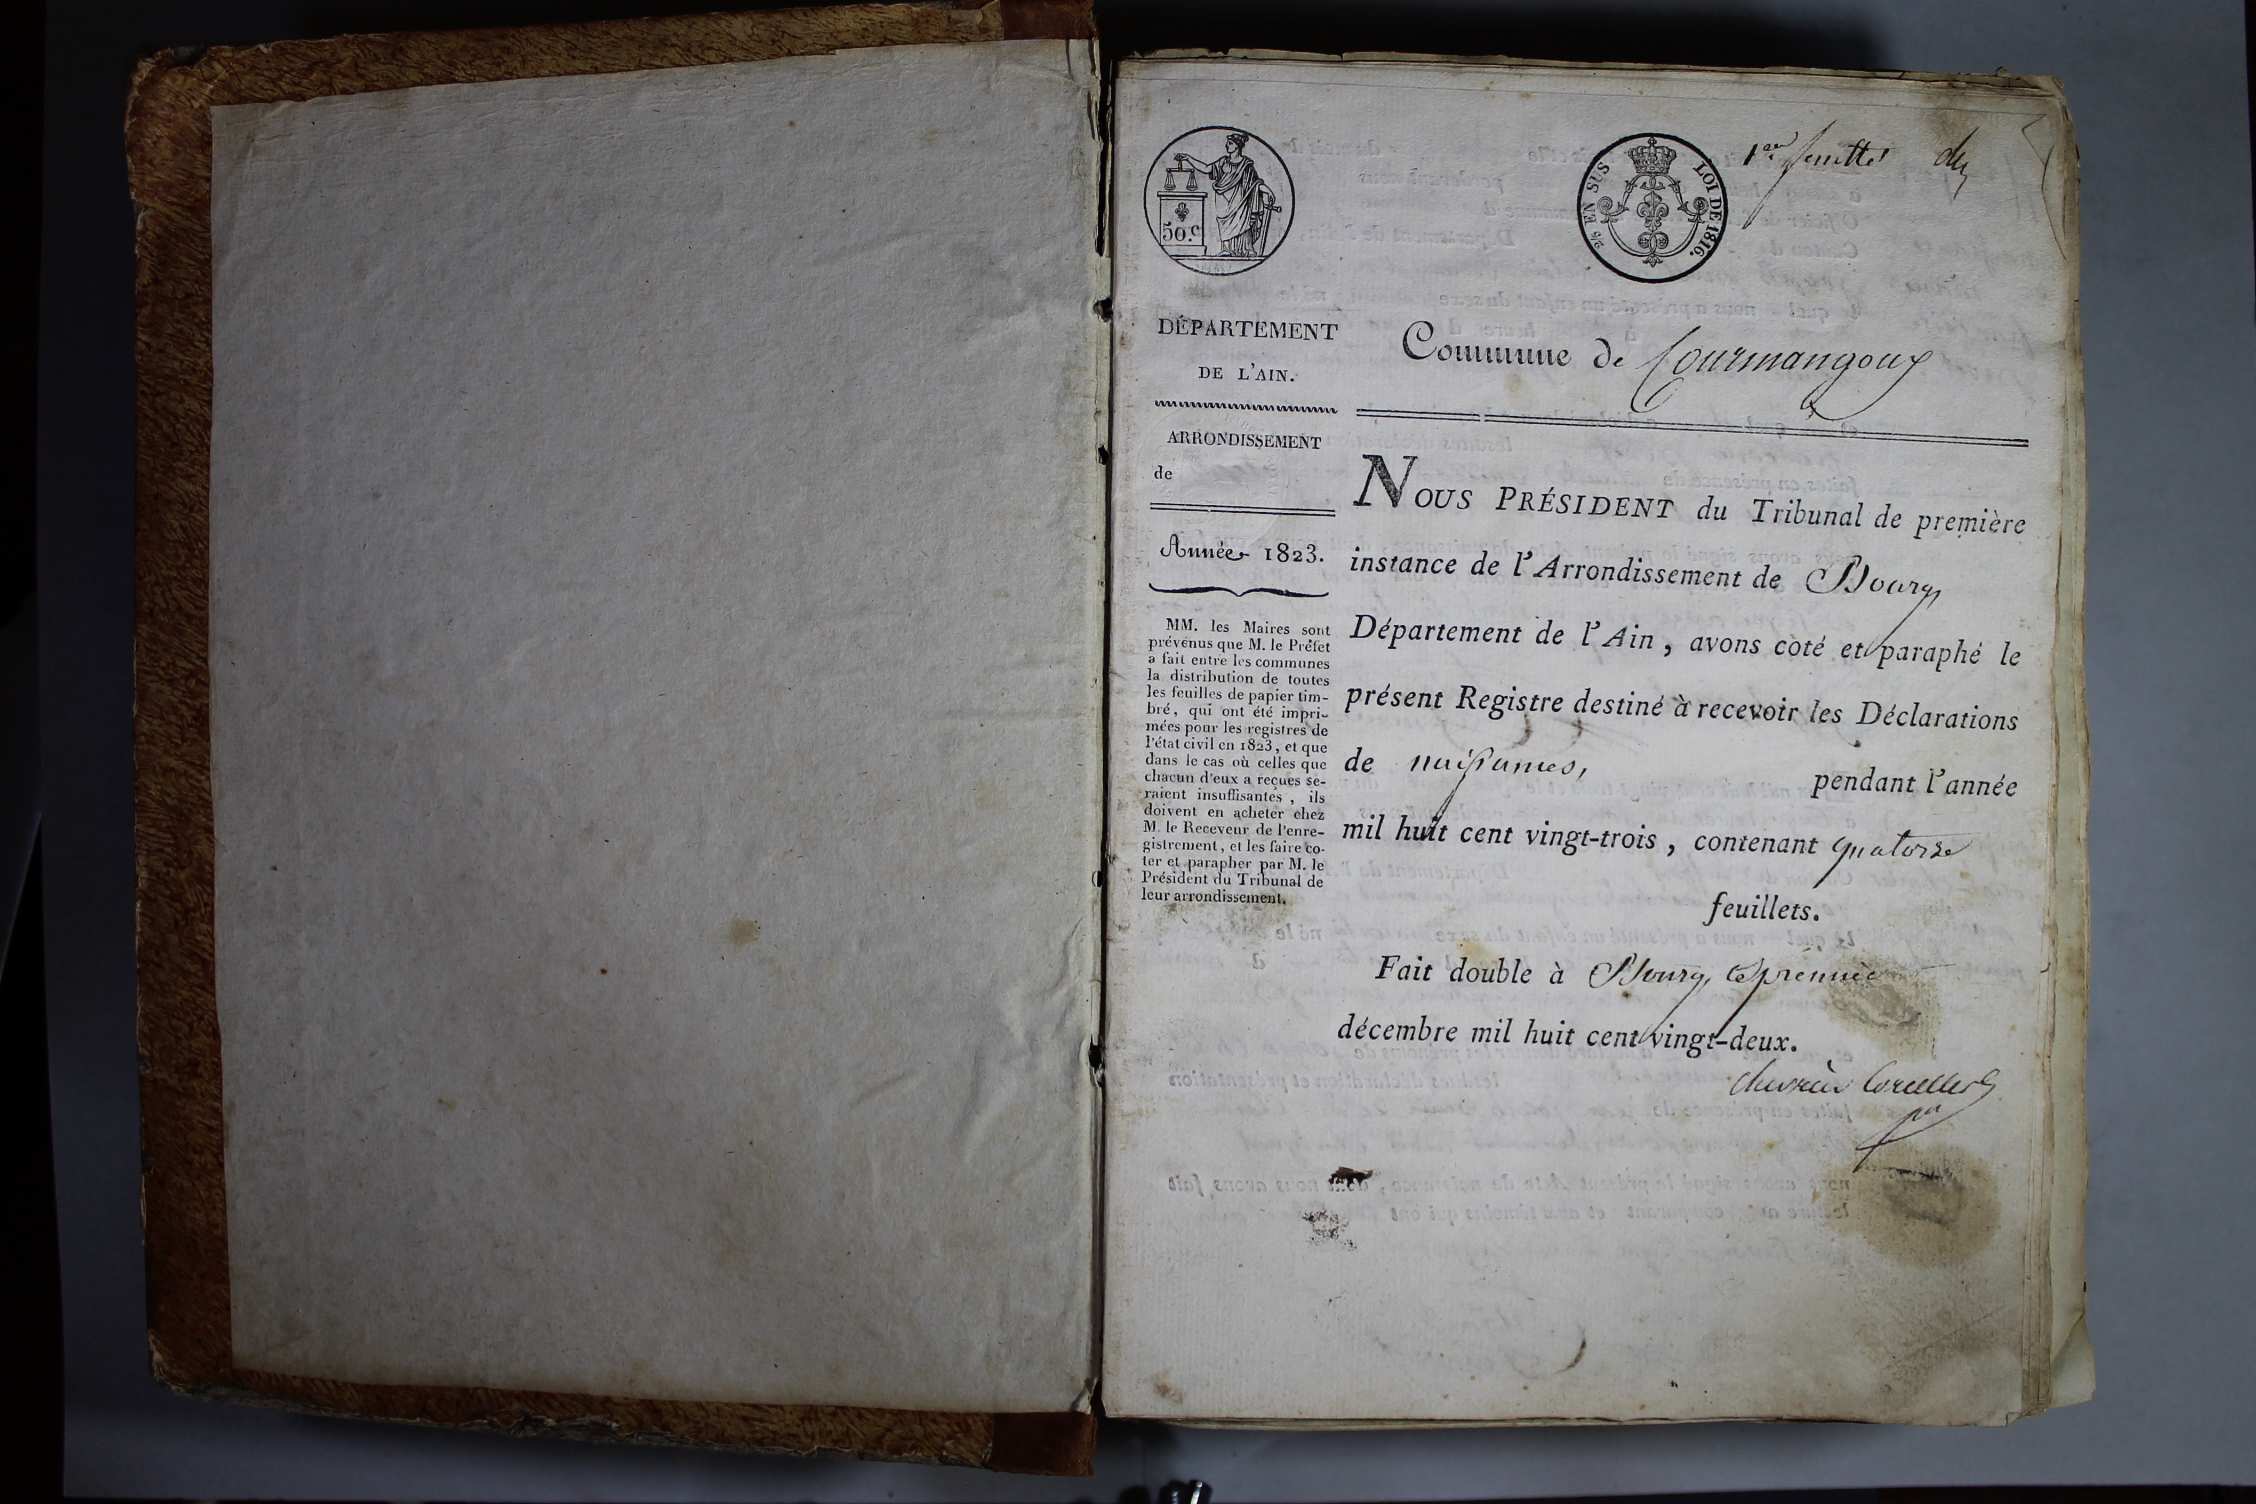 50.c
2/5 EN SUS
LOI DE 1816.
1er feuillet
DÉPARTEMENT
DE L'AIN.
ARRONDISSEMENT
de
Année 1823.
MM. les Maires sont
prévenus que M. le Préfet
a fait entre les communes
la distribution de toutes
les feuilles de papier tim-
bré, qui ont été impri-
mées pour les registres de
l'état civil en 1823, et que
dans le cas où celles que
chacun d'eux a reçues se-
raient insuffisantes, ils
doivent en acheter chez
M. le Receveur de l'enre-
gistrement, et les faire co-
ter et parapher par M. le
Président du Tribunal de
leur arrondissement.
Commune de Courmangoux
NOUS PRÉSIDENT du Tribunal de première
instance de l'Arrondissement de Bourg
Département de l'Ain, avons coté et paraphé le
présent Registre destiné à recevoir les Déclarations
de naissances, pendant l'année
mil huit cent vingt-trois, contenant quatorze
feuillets.
Fait double à Bourg, le premier
décembre mil huit cent vingt-deux.